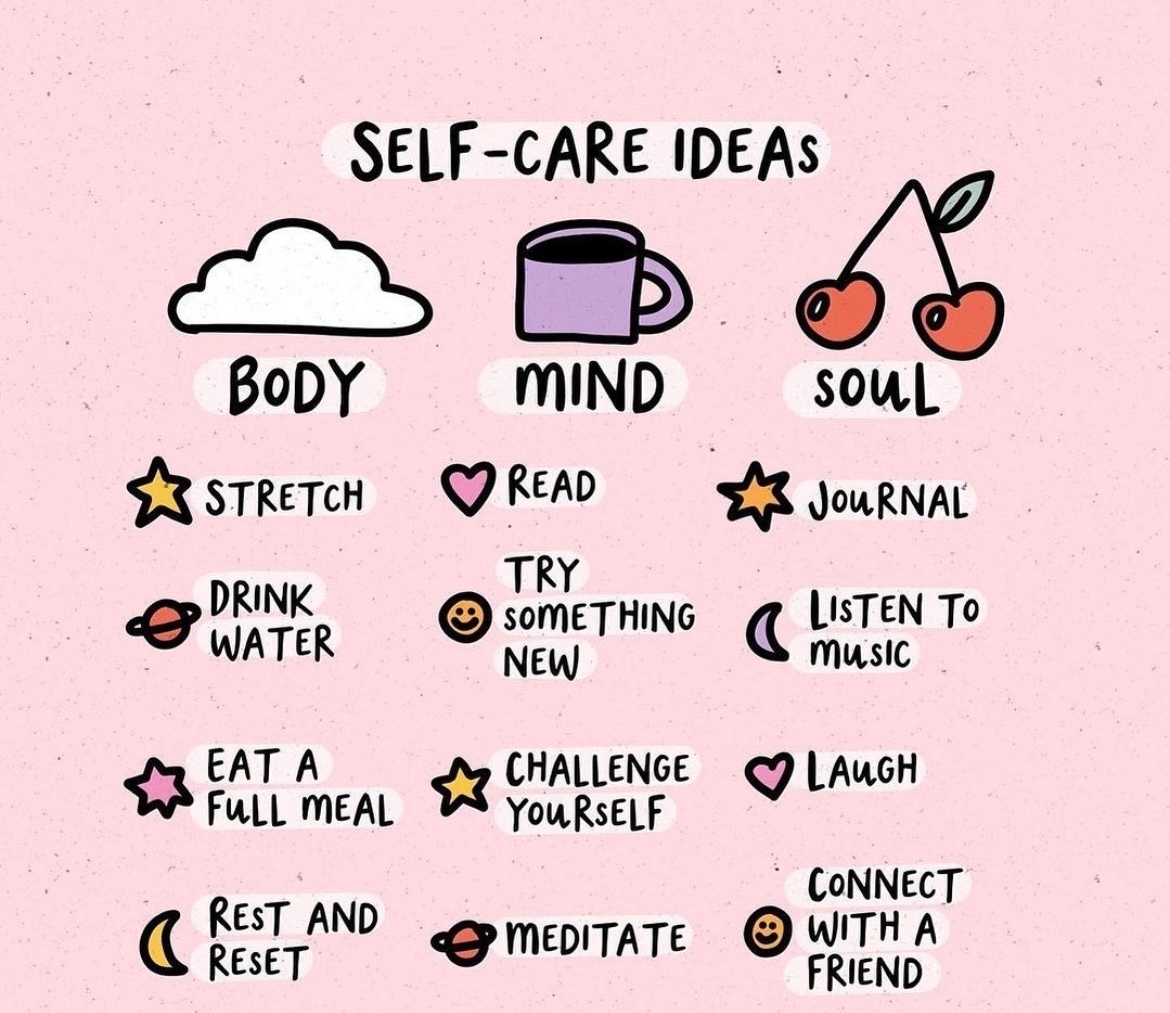 SELF-CARE IDEAS
BODY
STRETCH
DRINK
WATER
EAT A
FULL MEAL
REST AND
RESET
MIND
READ
TRY
SOMETHING
NEW
CHALLENGE
YOURSELF
MEDITATE
SOUL
JOURNAL
LISTEN TO
MUSIC
LAUGH
CONNECT
WITH A
FRIEND